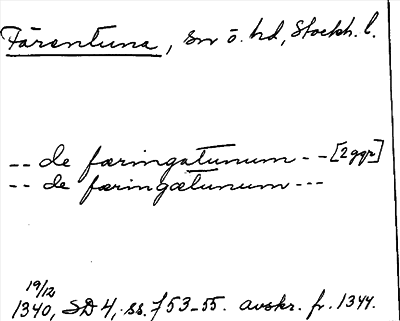 Färentuna, sn o. hd, Stockh. l.
-- de færingatunum -- [2 ggr]
-- de færingætunum ---
19/12
1340, SD 4, ss. 753-55. avskr. fr. 1344.